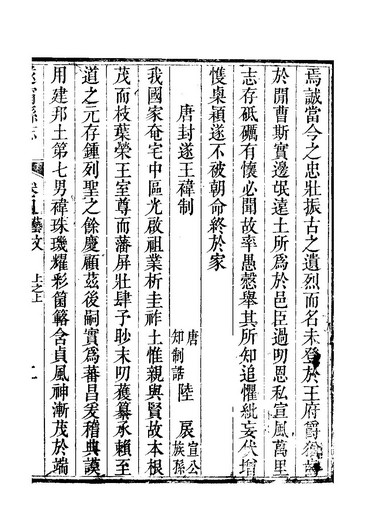 焉誠當今之忠壯振古之遺烈而名未登於王府爵
於閒曹斯實邊氓遠土所爲於邑臣過叨恩私宣風萬里
志存砥礪有懷必聞故率愚慤舉其所知追懼紕妄伏增
悚臬穎遂不被朝命終於家
唐封遂王禕制 唐知制誥 陸扆 宣公族孫
我國家奄宅中區光啟祖業析圭祚土惟親與賢故本根
茂而枝葉榮王室尊而藩屏壯肆予眇末叨獲纂承賴至
道之元存鍾列聖之餘慶顧茲後嗣實爲蕃昌爰稽典謨
用建邦土第七男禕珠璣耀彩箘簵含貞風神漸茂於端
遂甯縣志 卷 藝文 上之上